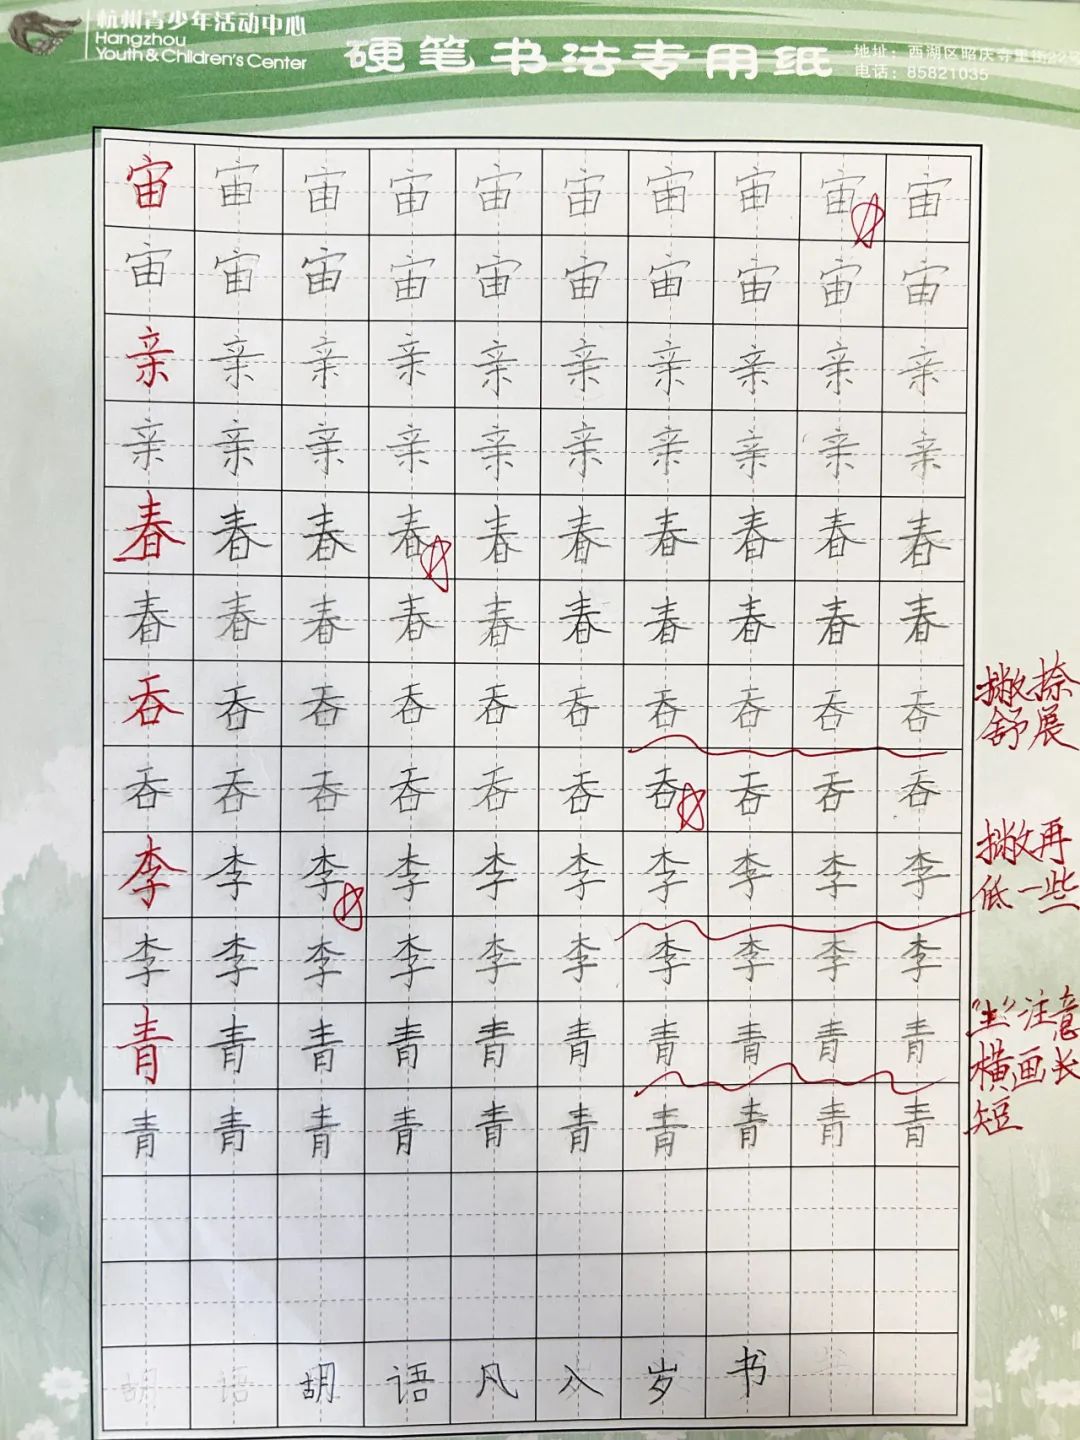 杭州青少年活动中心
Hangzhou
Youth & Children's Center
硬笔书法专用纸
地址：西湖区昭庆寺里街22号
电话：85821035
宙宙宙宙宙宙宙宙宙宙
宙宙宙宙宙宙宙宙宙宙
亲亲亲亲亲亲亲亲亲亲
亲亲亲亲亲亲亲亲亲亲
春春春春春春春春春春
春春春春春春春春春春
吞吞吞吞吞吞吞吞吞吞
撇捺
舒展
吞吞吞吞吞吞吞吞吞吞
李李李李李李李李李李
撇再
低一些
李李李李李李李李李李
青青青青青青青青青青
"龶"注意
横画长
短
青青青青青青青青青青
胡语胡语凡八岁书